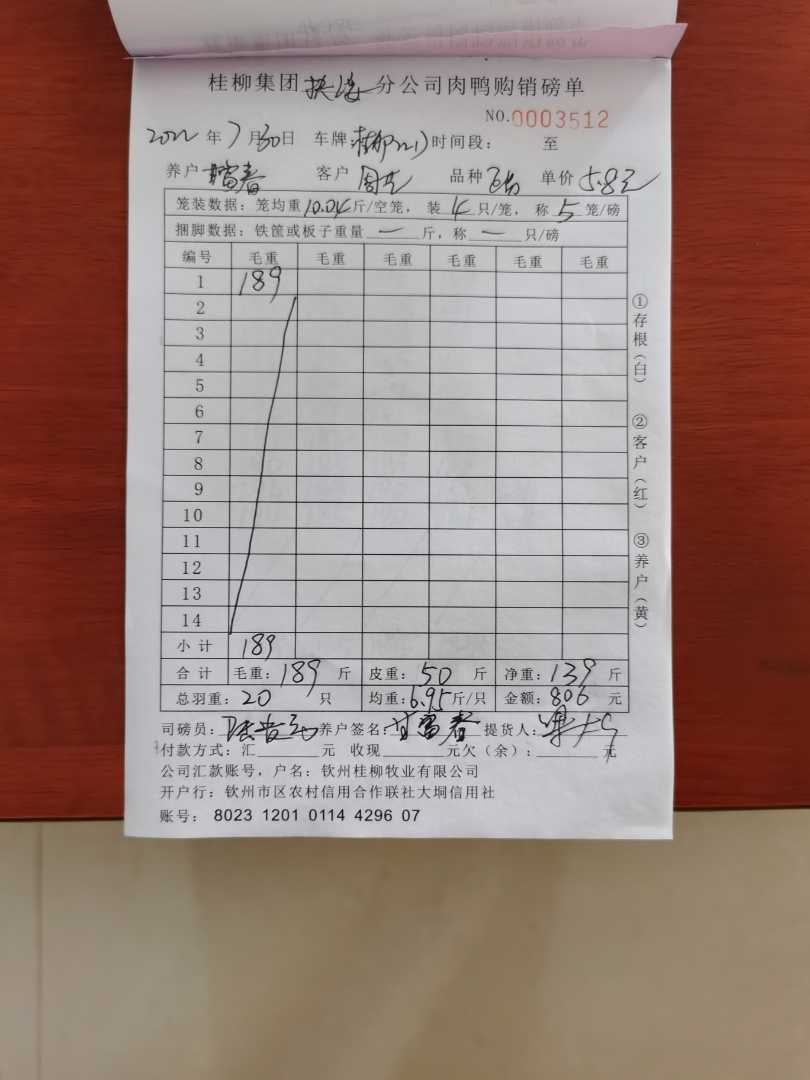 桂柳集团 分公司肉鸭购销磅单
NO.0003512
2022年7月30日 车牌 时间段: 至
养户 富春 客户 周 品种 单价5.8元
笼装数据: 笼均重10.04斤/空笼, 装4只/笼, 称5笼/磅
捆脚数据: 铁筐或板子重量一斤, 称一只/磅
编号 毛重 毛重 毛重 毛重 毛重 毛重
1 189
2
3
4
5
6
7
8
9
10
11
12
13
14
小计 189
合计 毛重: 189斤 皮重: 50斤 净重: 139斤
总羽重: 20只 均重: 6.95斤/只 金额: 806元
司磅员: 养户签名: 甘富春 提货人:
付款方式: 汇 元 收现 元欠(余): 元
公司汇款账号, 户名: 钦州桂柳牧业有限公司
开户行: 钦州市区农村信用合作联社大垌信用社
账号: 8023 1201 0114 4296 07
①存根(白)
②客户(红)
③养户(黄)